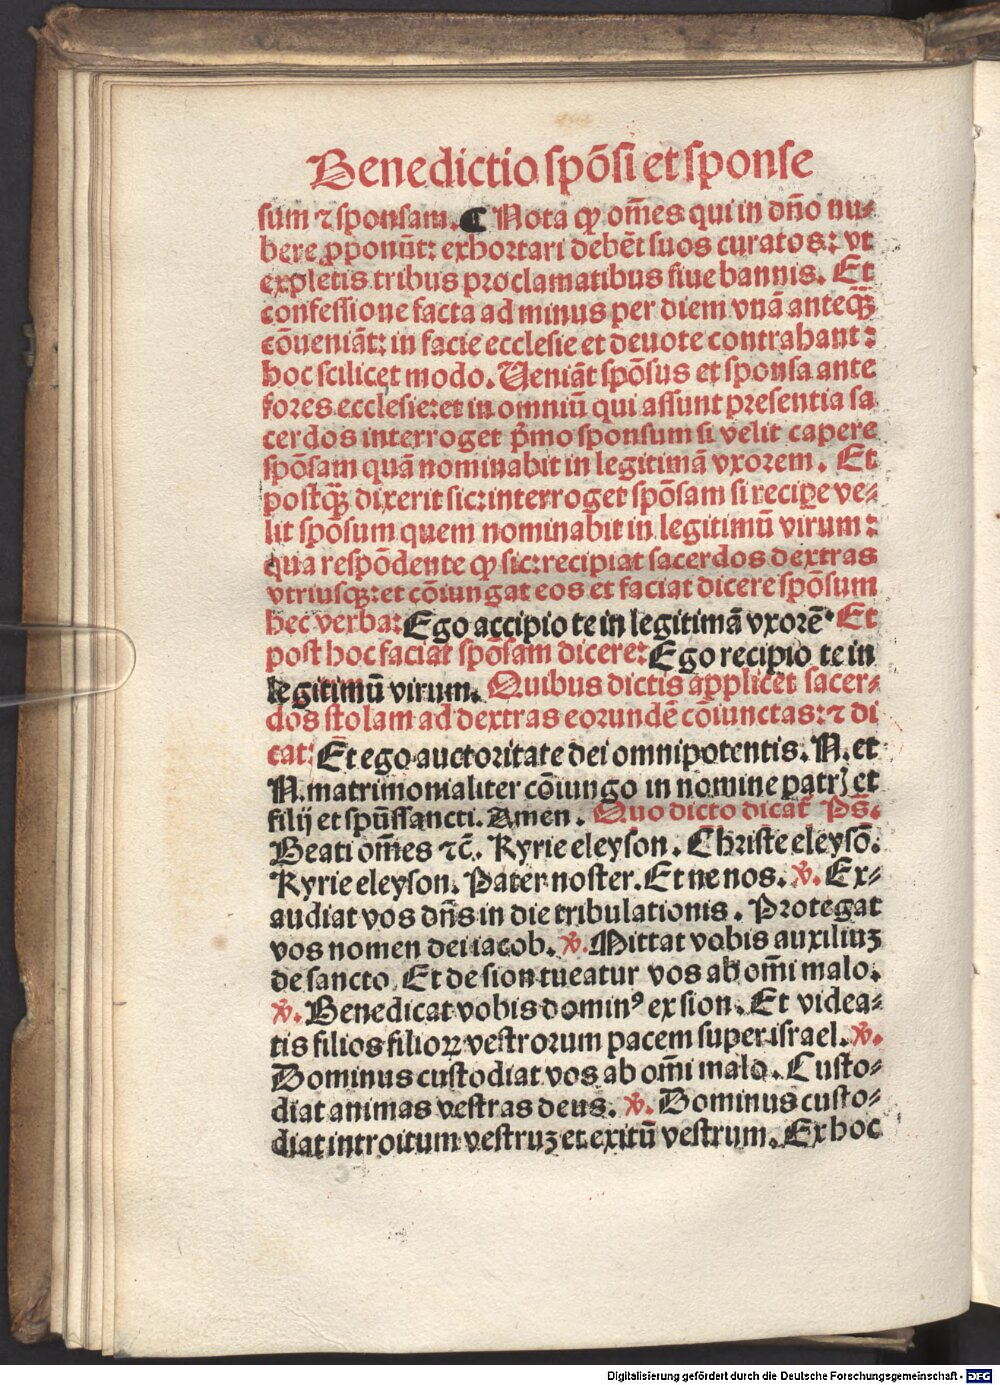 Benedictio spōsi et sponse
sum ⁊ sponsam. ¶ Nota ꝙ om̄es qui in dn̄o nu⸗
bere ꝓponūt: exhortari debēt suos curatos: vt
expletis tribus proclamatibus siue bannis. Et
confessione facta ad minus per diem vnā anteqꝫ̄
cōueniāt: in facie ecclesie et deuote contrahant:
hoc scilicet modo. Veniāt spōsus et sponsa ante
fores ecclesie: et in omniū qui assunt presentia sa
cerdos interroget p̄mo sponsum si velit capere
spōsam quā nominabit in legitimā vxorem. Et
postqꝫ̄ dixerit sic: interroget spōsam si recipe ve⸗
lit spōsum quem nominabit in legitimū virum:
qua respōdente ꝙ sic: recipiat sacerdos dextras
vtriusqꝫ: et cōiungat eos et faciat dicere spōsum
hec verba: Ego accipio te in legitimā vxorē. Et
post hoc faciat spōsam dicere: Ego recipio te in
legitimū virum. Quibus dictis applicet sacer⸗
dos stolam ad dextras eorundē cōiunctas: ⁊ di
cat: Et ego auctoritate dei omnipotentis. N. et
N. matrimonialiter cōiungo in nomine patrꝭ et
filij et spūssancti. Amen. Quo dicto dicat̄ Ps̄.
Beati om̄es ⁊c̄. Kyrie eleyson. Christe eleysō.
Kyrie eleyson. Pater noster. Et ne nos. ℣. Ex⸗
audiat vos dn̄s in die tribulationis. Protegat
vos nomen dei iacob. ℣. Mittat vobis auxiliuꝫ
de sancto. Et de sion tueatur vos ab om̄i malo.
℣. Benedicat vobis dominꝰ ex sion. Et videa⸗
tis filios filioꝝ vestrorum pacem super israel. ℣.
Dominus custodiat vos ab om̄i malo. Custo⸗
diat animas vestras deus. ℣. Dominus custo⸗
diat introitum vestruꝫ et exitū vestrum. Ex hoc
Digitalisierung gefördert durch die Deutsche Forschungsgemeinschaft - DFG